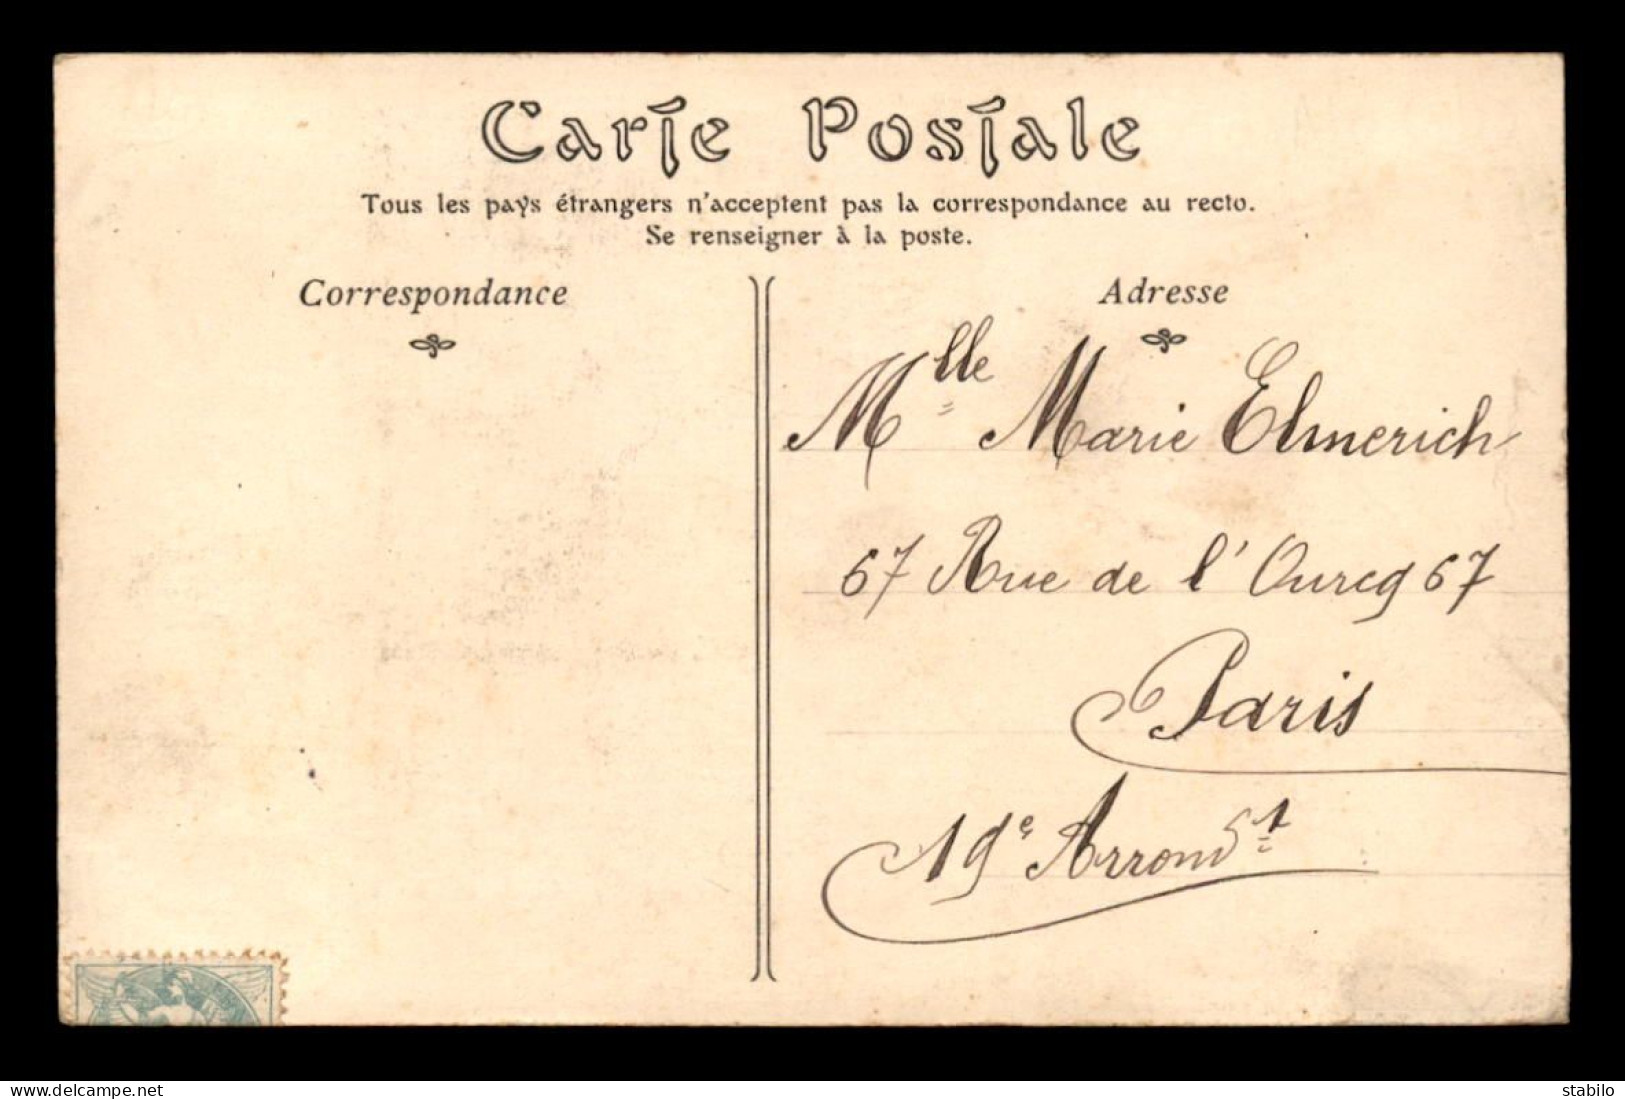 Carte Postale
Tous les pays étrangers n'acceptent pas la correspondance au recto.
Se renseigner à la poste.
Correspondance
Adresse
Mlle Marie Elmerich
67 Rue de l'Ourcq 67
Paris
19e Arrondst
delcampe.net
stabilo